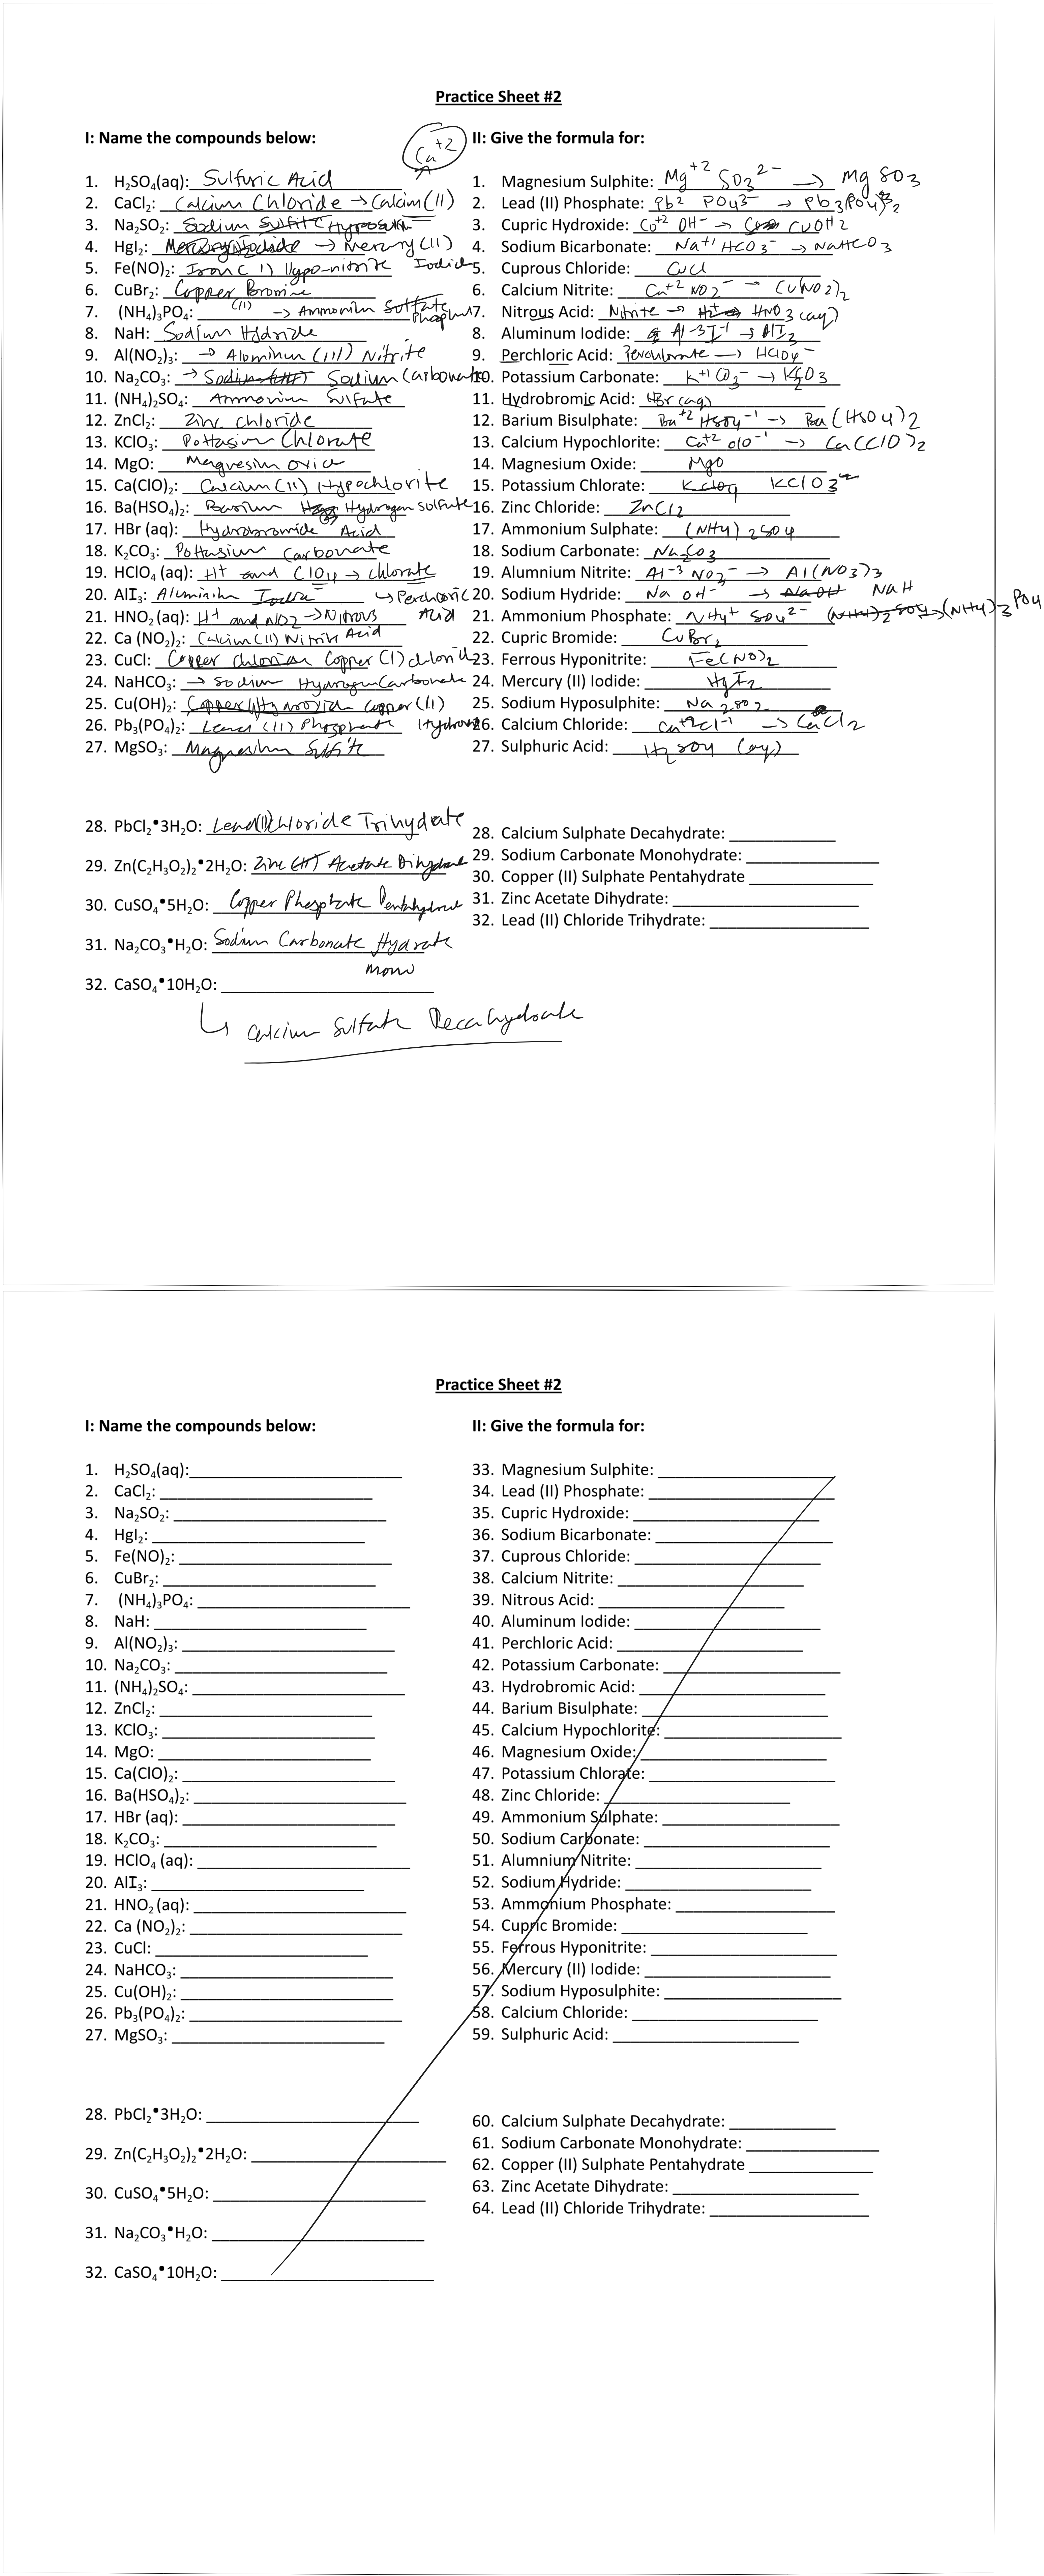 Practice Sheet #2
I: Name the compounds below:
Ca+2
1. H₂SO₄(aq): Sulfuric Acid
2. CaCl₂: Calcium Chloride → Calcium (II)
3. Na₂SO₂: Sodium Sulfite Hyposulfite
4. HgI₂: → Mercury (II) Iodide
5. Fe(NO)₂: Iron (I) Hyponitrite
6. CuBr₂: Copper Bromine
(II)
7. (NH₄)₃PO₄: → Ammonium Sulfate Phosphate
8. NaH: Sodium Hydride
9. Al(NO₂)₃: → Aluminum (III) Nitrite
10. Na₂CO₃: → Sodium Carbonate
11. (NH₄)₂SO₄: Ammonium Sulfate
12. ZnCl₂: Zinc chloride
13. KClO₃: Pottasium Chlorate
14. MgO: Magnesium oxide
15. Ca(ClO)₂: Calcium (II) Hypochlorite
16. Ba(HSO₄)₂: Barium Hydrogen sulfate
17. HBr (aq): Hydrobromide Acid
18. K₂CO₃: Pottasium Carbonate
19. HClO₄ (aq): H+ and ClO4 → chlorate
↳ Perchloric Acid
20. AlI₃: Aluminium
21. HNO₂ (aq): H+ and NO2 → Nitrous Acid
22. Ca (NO₂)₂: Calcium (II) Nitrite
23. CuCl: Copper chlorine Copper (I) chloride
24. NaHCO₃: → Sodium Hydrogen Carbonate
25. Cu(OH)₂: Copper Hydroxide Copper (II) Hydroxide
26. Pb₃(PO₄)₂: Lead (II) Phosphate
27. MgSO₃: Magnesium Sulfite
28. PbCl₂•3H₂O: Lead(II)Chloride Trihydrate
29. Zn(C₂H₃O₂)₂•2H₂O: Zinc (II) Acetate Dihydrate
30. CuSO₄•5H₂O: Copper Phosphate Pentahydrate
31. Na₂CO₃•H₂O: Sodium Carbonate Hydrate
mono
32. CaSO₄•10H₂O:
↳ Calcium Sulfate Decahydrate
II: Give the formula for:
1. Magnesium Sulphite: Mg+2 SO3 2- → MgSO3
2. Lead (II) Phosphate: Pb2 PO4 3- → Pb3(PO4)2
3. Cupric Hydroxide: Cu+2 OH- → CuOH2
4. Sodium Bicarbonate: Na+1 HCO3- → NaHCO3
5. Cuprous Chloride: CuCl
6. Calcium Nitrite: Ca+2 NO2- → (NO2)2
7. Nitrous Acid: Nitrite → HNO3 (aq)
8. Aluminum Iodide: Al-3 I-1 → AlI3
9. Perchloric Acid: Perchlorate → HClO4-
10. Potassium Carbonate: K+1 CO3- → K2O3
11. Hydrobromic Acid: HBr(aq)
12. Barium Bisulphate: Ba+2 HSO4-1 → Ba(HSO4)2
13. Calcium Hypochlorite: Ca+2 ClO-1 → Ca(ClO)2
14. Magnesium Oxide: MgO
15. Potassium Chlorate: KClO4 KClO3
16. Zinc Chloride: ZnCl2
17. Ammonium Sulphate: (NH4)2SO4
18. Sodium Carbonate: Na2CO3
19. Alumnium Nitrite: Al-3 NO2- → Al(NO3)3
20. Sodium Hydride: Na OH- → NaOH NaH
21. Ammonium Phosphate: NH4+ SO4 2- (NH4)2 SO4 → (NH4)3 PO4
22. Cupric Bromide: CuBr2
23. Ferrous Hyponitrite: Fe(NO)2
24. Mercury (II) Iodide: HgI2
25. Sodium Hyposulphite: Na2SO2
26. Calcium Chloride: Ca+2Cl-1 → CaCl2
27. Sulphuric Acid: H2SO4 (aq)
28. Calcium Sulphate Decahydrate:
29. Sodium Carbonate Monohydrate:
30. Copper (II) Sulphate Pentahydrate
31. Zinc Acetate Dihydrate:
32. Lead (II) Chloride Trihydrate:
Practice Sheet #2
I: Name the compounds below:
1. H₂SO₄(aq):
2. CaCl₂:
3. Na₂SO₂:
4. HgI₂:
5. Fe(NO)₂:
6. CuBr₂:
7. (NH₄)₃PO₄:
8. NaH:
9. Al(NO₂)₃:
10. Na₂CO₃:
11. (NH₄)₂SO₄:
12. ZnCl₂:
13. KClO₃:
14. MgO:
15. Ca(ClO)₂:
16. Ba(HSO₄)₂:
17. HBr (aq):
18. K₂CO₃:
19. HClO₄ (aq):
20. AlI₃:
21. HNO₂ (aq):
22. Ca (NO₂)₂:
23. CuCl:
24. NaHCO₃:
25. Cu(OH)₂:
26. Pb₃(PO₄)₂:
27. MgSO₃:
28. PbCl₂•3H₂O:
29. Zn(C₂H₃O₂)₂•2H₂O:
30. CuSO₄•5H₂O:
31. Na₂CO₃•H₂O:
32. CaSO₄•10H₂O:
II: Give the formula for:
33. Magnesium Sulphite:
34. Lead (II) Phosphate:
35. Cupric Hydroxide:
36. Sodium Bicarbonate:
37. Cuprous Chloride:
38. Calcium Nitrite:
39. Nitrous Acid:
40. Aluminum Iodide:
41. Perchloric Acid:
42. Potassium Carbonate:
43. Hydrobromic Acid:
44. Barium Bisulphate:
45. Calcium Hypochlorite:
46. Magnesium Oxide:
47. Potassium Chlorate:
48. Zinc Chloride:
49. Ammonium Sulphate:
50. Sodium Carbonate:
51. Alumnium Nitrite:
52. Sodium Hydride:
53. Ammonium Phosphate:
54. Cupric Bromide:
55. Ferrous Hyponitrite:
56. Mercury (II) Iodide:
57. Sodium Hyposulphite:
58. Calcium Chloride:
59. Sulphuric Acid:
60. Calcium Sulphate Decahydrate:
61. Sodium Carbonate Monohydrate:
62. Copper (II) Sulphate Pentahydrate
63. Zinc Acetate Dihydrate:
64. Lead (II) Chloride Trihydrate: